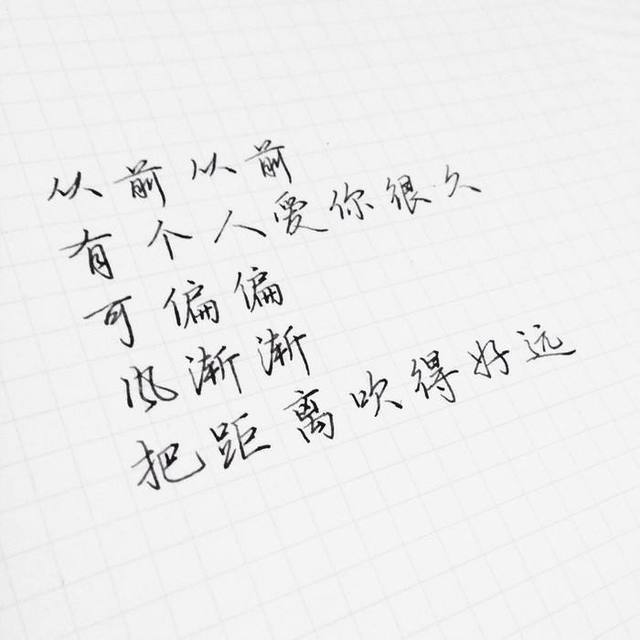 从前从前
有个人爱你很久
可偏偏
风渐渐
把距离吹得好远